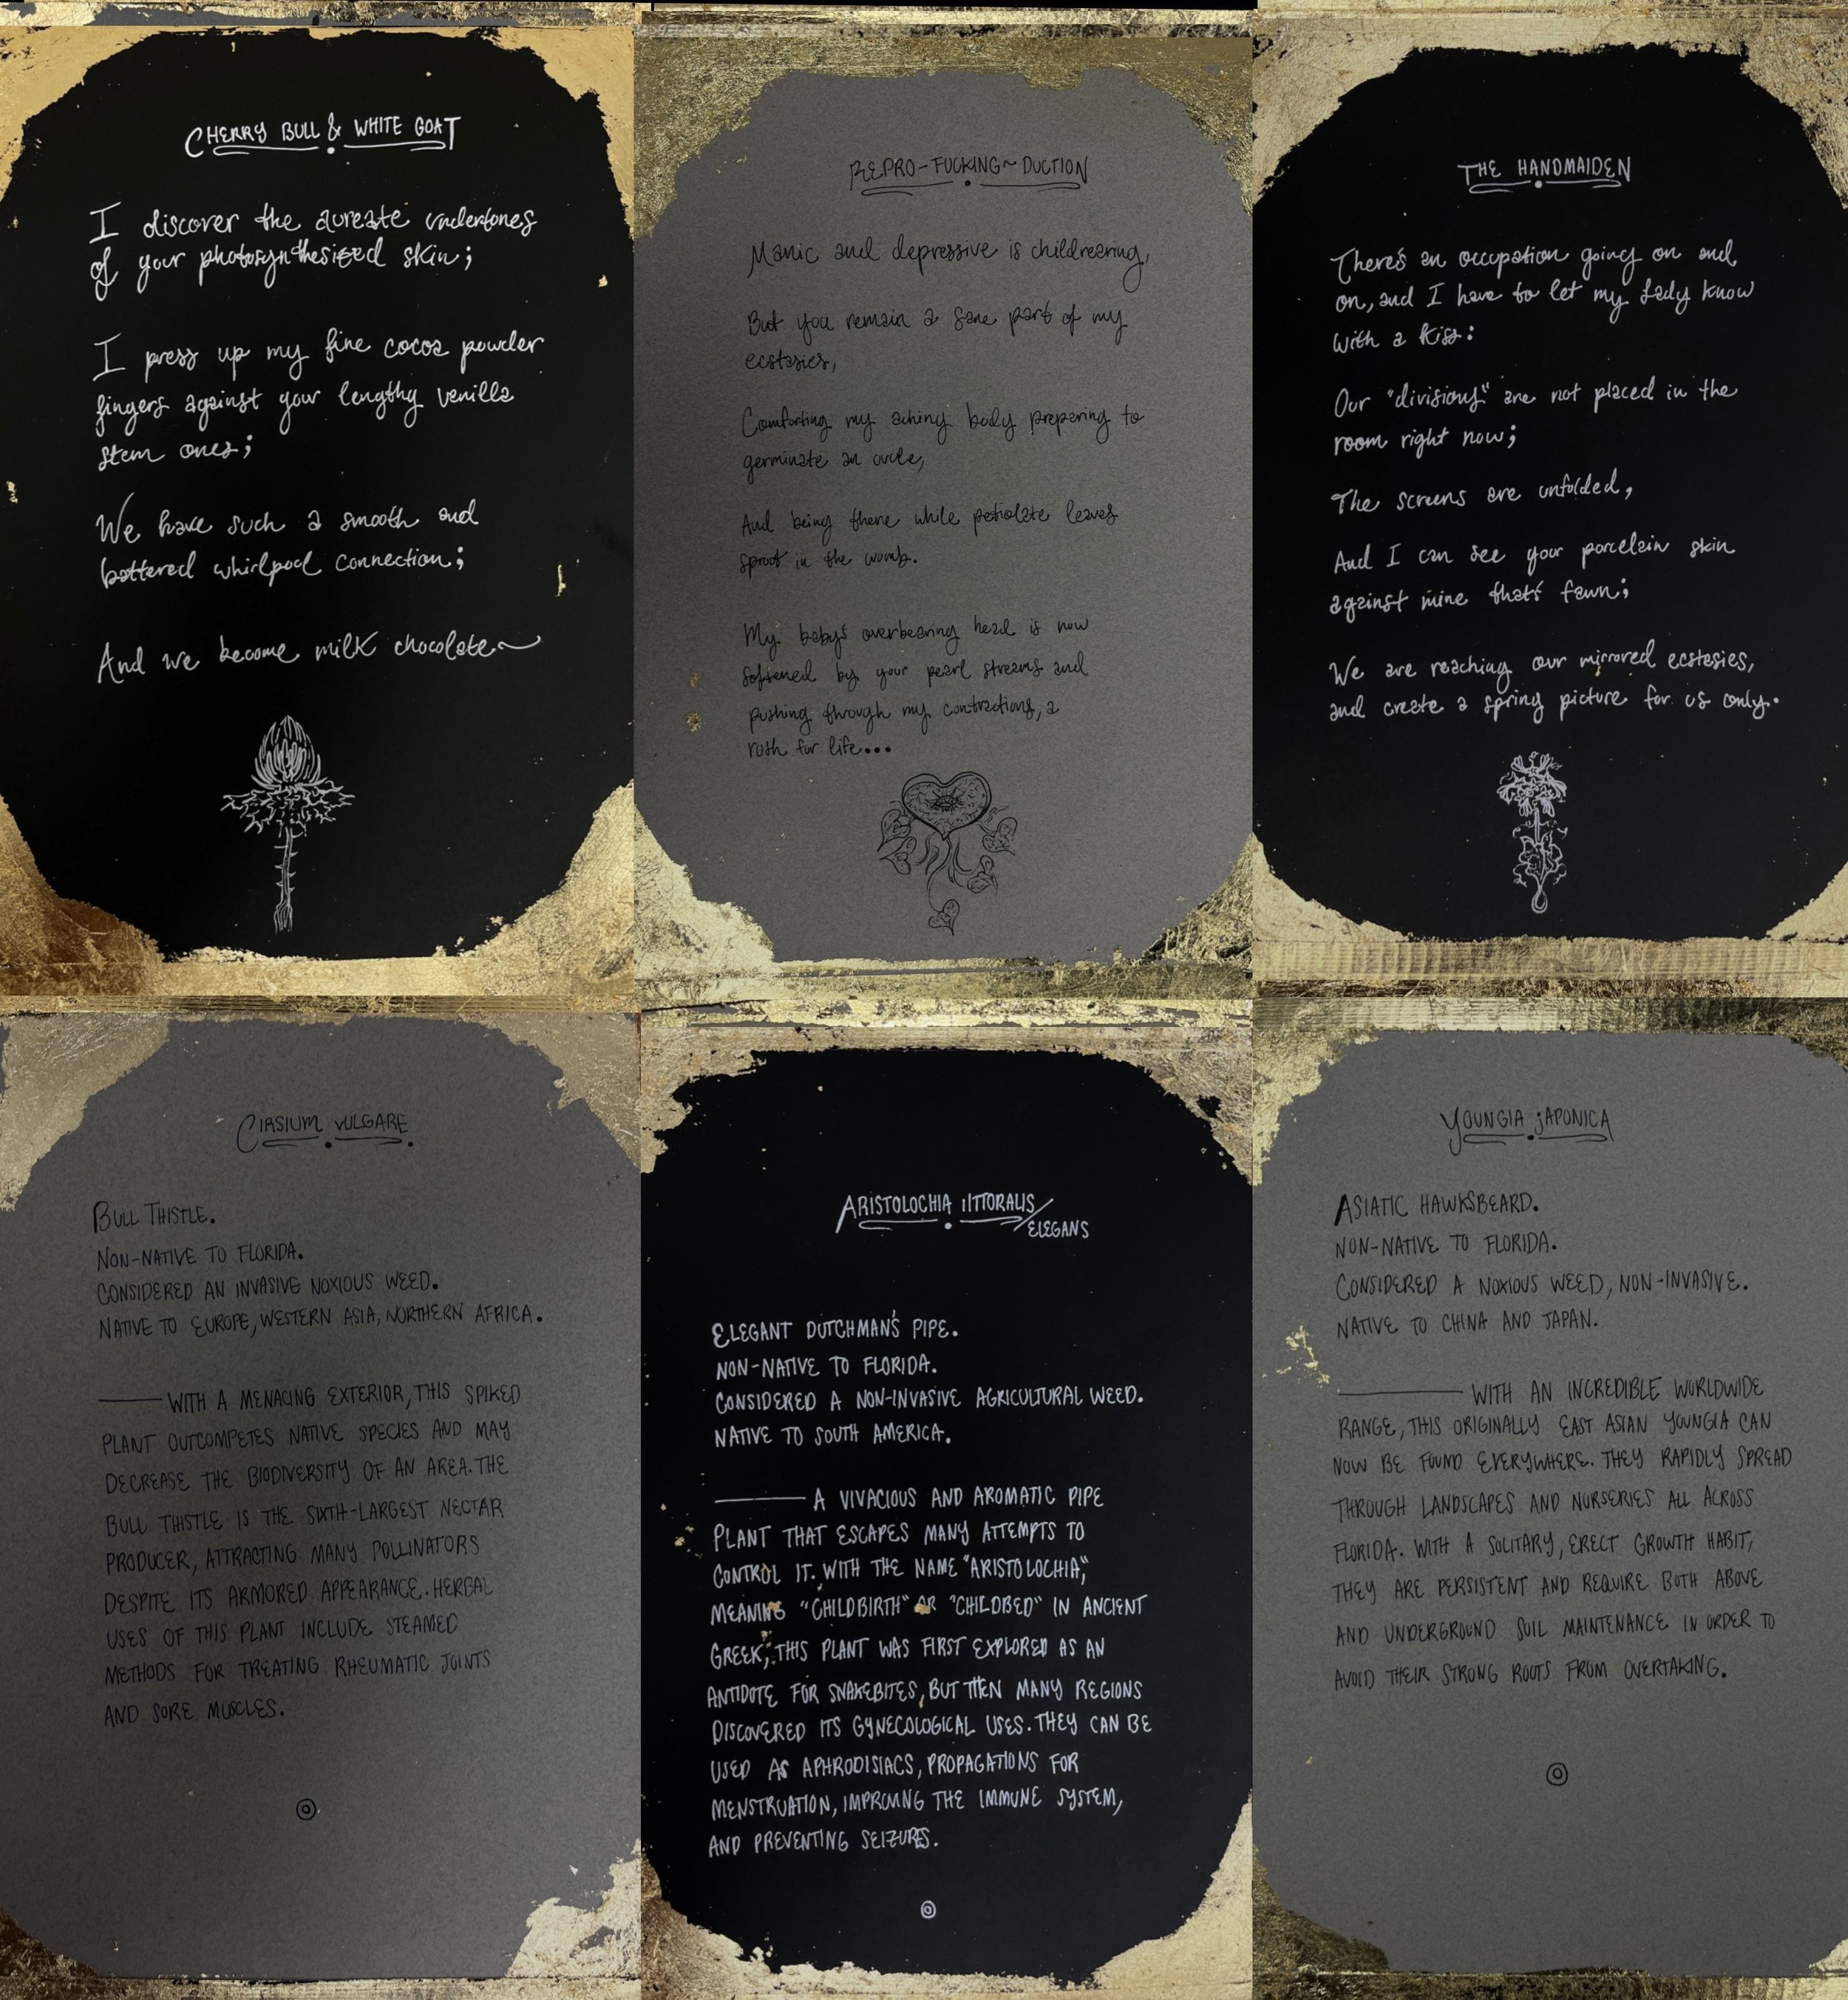 CHERRY BULL & WHITE GOAT
I discover the aureate undertones
of your photosynthesized skin;
I press up my fine cocoa powder
fingers against your lengthy vanilla
stem ones;
We have such a smooth and
battered whirlpool connection;
And we become milk chocolate~
REPRO-FUCKING~DUCTION
Manic and depressive is childrearing,
But you remain a sane part of my
ecstasies,
Comforting my aching body preparing to
germinate an ovule,
And being there while petiolate leaves
sprout in the womb.
My baby's overbearing head is now
softened by your pearl streams and
pushing through my contractions, a
rush for life...
THE HANDMAIDEN
There's an occupation going on and
on, and I have to let my Lady know
with a kiss:
Our "divisions" are not placed in the
room right now;
The screens are unfolded,
And I can see your porcelain skin
against mine that's fawn;
We are reaching our mirrored ecstasies,
and create a spring picture for us only.
CIRSIUM VULGARE
BULL THISTLE.
NON-NATIVE TO FLORIDA.
CONSIDERED AN INVASIVE NOXIOUS WEED.
NATIVE TO EUROPE, WESTERN ASIA, NORTHERN AFRICA.
—WITH A MENACING EXTERIOR, THIS SPIKED
PLANT OUTCOMPETES NATIVE SPECIES AND MAY
DECREASE THE BIODIVERSITY OF AN AREA. THE
BULL THISTLE IS THE SIXTH-LARGEST NECTAR
PRODUCER, ATTRACTING MANY POLLINATORS
DESPITE ITS ARMORED APPEARANCE. HERBAL
USES OF THIS PLANT INCLUDE STEAMED
METHODS FOR TREATING RHEUMATIC JOINTS
AND SORE MUSCLES.
ARISTOLOCHIA lITTORALIS/
ELEGANS
ELEGANT DUTCHMAN'S PIPE.
NON-NATIVE TO FLORIDA.
CONSIDERED A NON-INVASIVE AGRICULTURAL WEED.
NATIVE TO SOUTH AMERICA.
—A VIVACIOUS AND AROMATIC PIPE
PLANT THAT ESCAPES MANY ATTEMPTS TO
CONTROL IT. WITH THE NAME "ARISTOLOCHIA,"
MEANING "CHILDBIRTH" OR "CHILDBED" IN ANCIENT
GREEK, THIS PLANT WAS FIRST EXPLORED AS AN
ANTIDOTE FOR SNAKEBITES, BUT THEN MANY REGIONS
DISCOVERED ITS GYNECOLOGICAL USES. THEY CAN BE
USED AS APHRODISIACS, PROPAGATIONS FOR
MENSTRUATION, IMPROVING THE IMMUNE SYSTEM,
AND PREVENTING SEIZURES.
YOUNGIA jAPONICA
ASIATIC HAWKSBEARD.
NON-NATIVE TO FLORIDA.
CONSIDERED A NOXIOUS WEED, NON-INVASIVE.
NATIVE TO CHINA AND JAPAN.
—WITH AN INCREDIBLE WORLDWIDE
RANGE, THIS ORIGINALLY EAST ASIAN YOUNGIA CAN
NOW BE FOUND EVERYWHERE. THEY RAPIDLY SPREAD
THROUGH LANDSCAPES AND NURSERIES ALL ACROSS
FLORIDA. WITH A SOLITARY, ERECT GROWTH HABIT,
THEY ARE PERSISTENT AND REQUIRE BOTH ABOVE
AND UNDERGROUND SOIL MAINTENANCE IN ORDER TO
AVOID THEIR STRONG ROOTS FROM OVERTAKING.